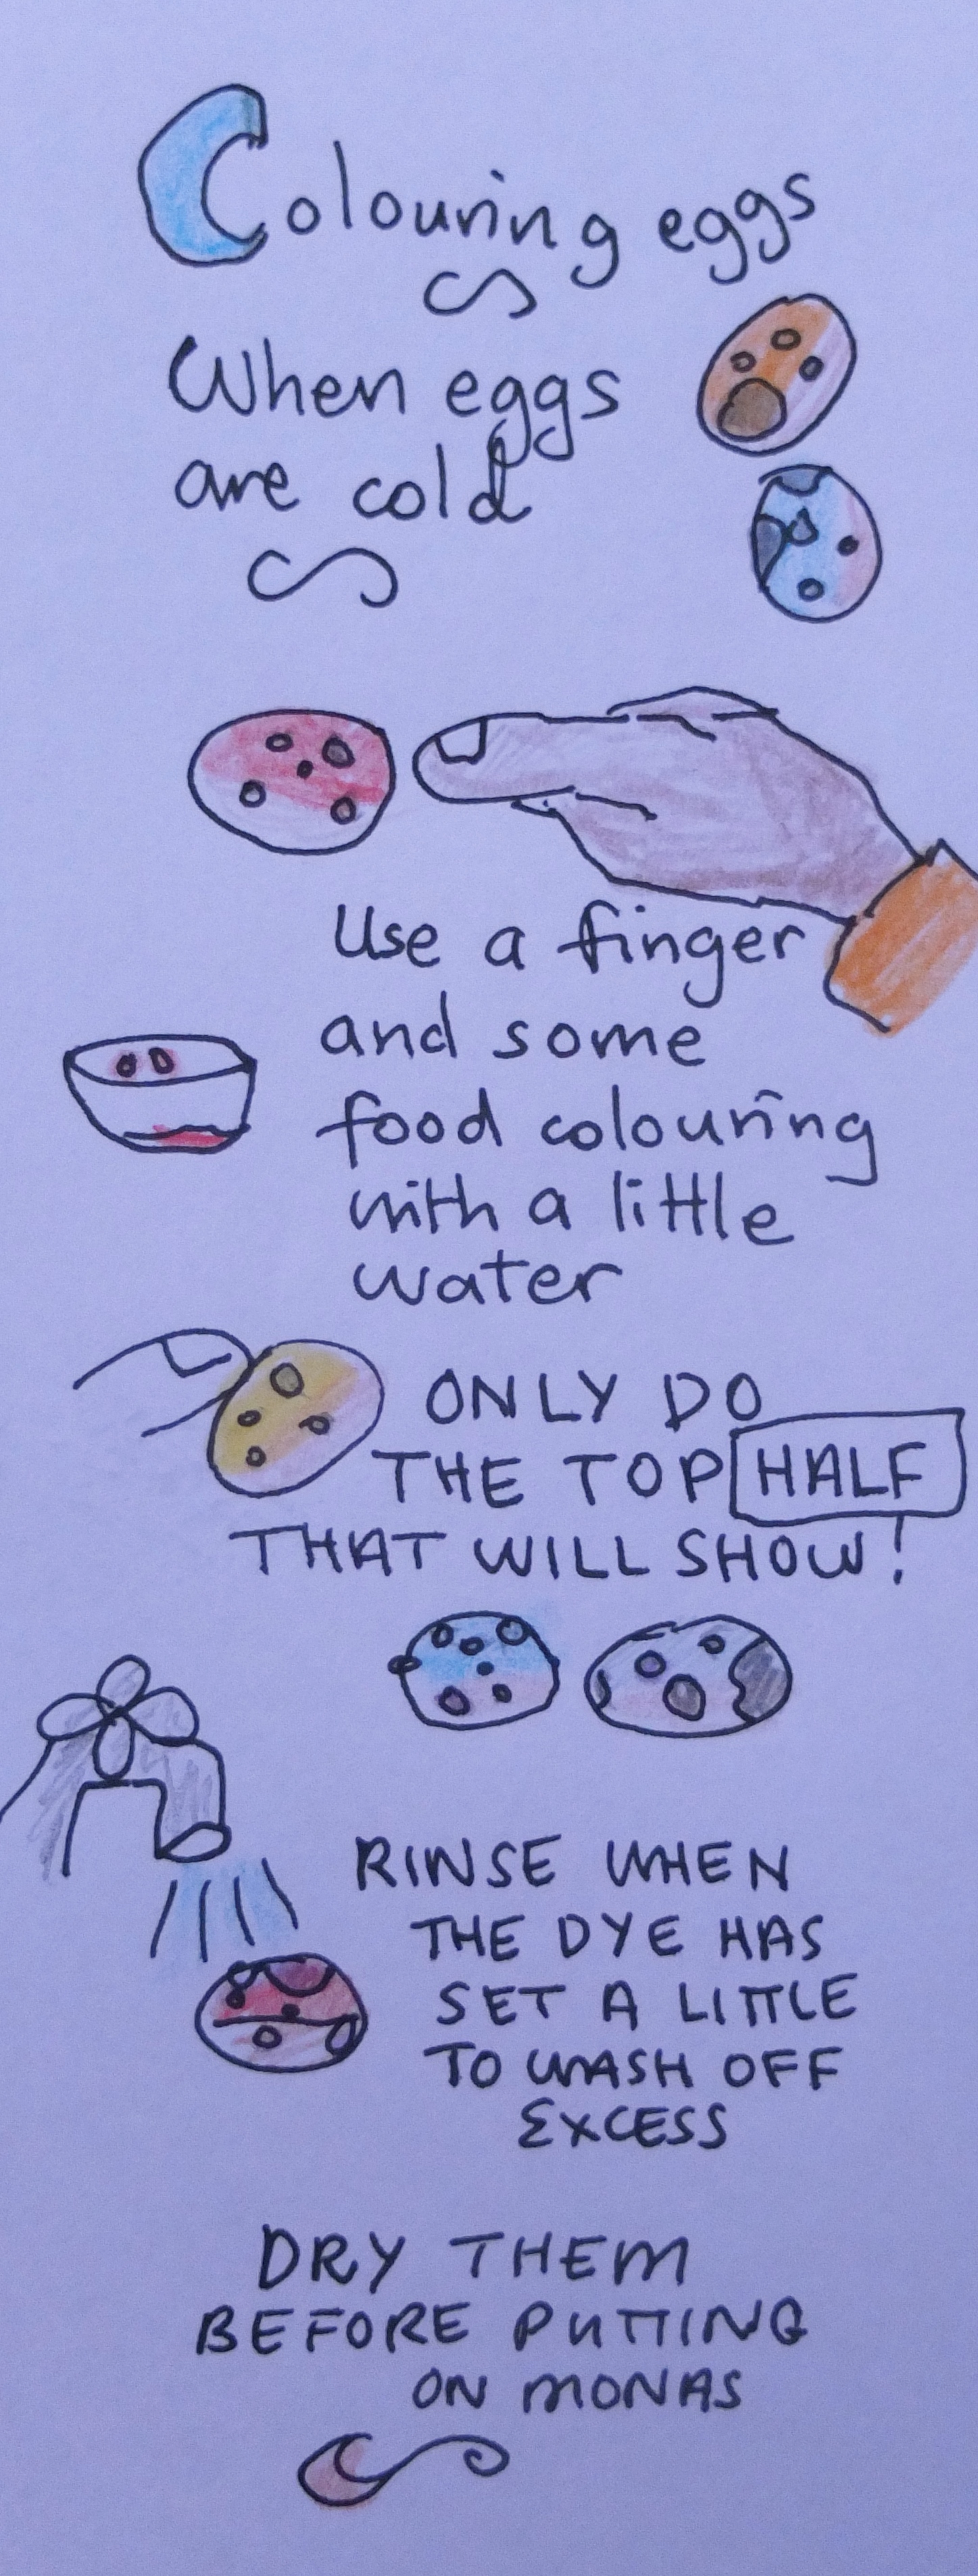 Colouring eggs
When eggs
are cold
Use a finger
and some
food colouring
with a little
water
ONLY DO
THE TOP HALF
THAT WILL SHOW!
RINSE WHEN
THE DYE HAS
SET A LITTLE
TO WASH OFF
EXCESS
DRY THEM
BEFORE PUTTING
ON MONAS